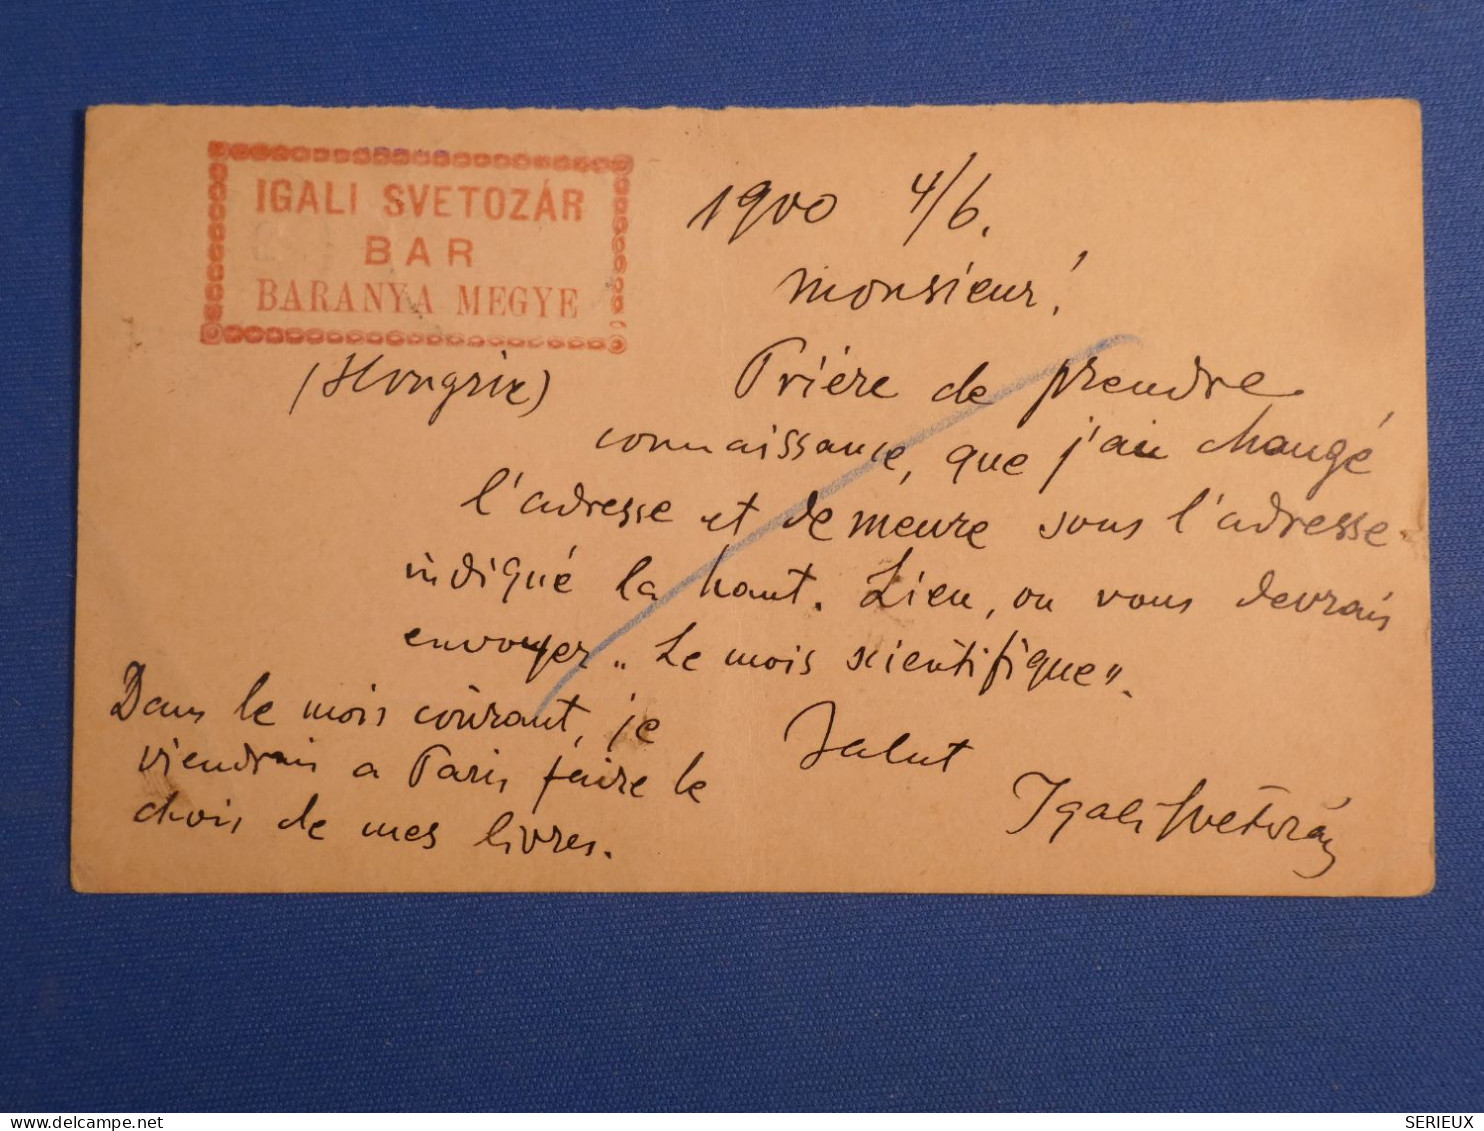 IGALI SVETOZÁR
BAR
BARANYA MEGYE
(Hongrie)
1900 4/6.
Monsieur!
Prière de prendre
connaissance, que j'ai changé
l'adresse et demeure sous l'adresse
indiqué la haut. Lieu, ou vous devrais
envoyer „Le mois scientifique".
Dans le mois courant, je
viendrais a Paris faire le
chois de mes livres.
Salut
Igali Svetozár
© delcampe.net
SERIEUX